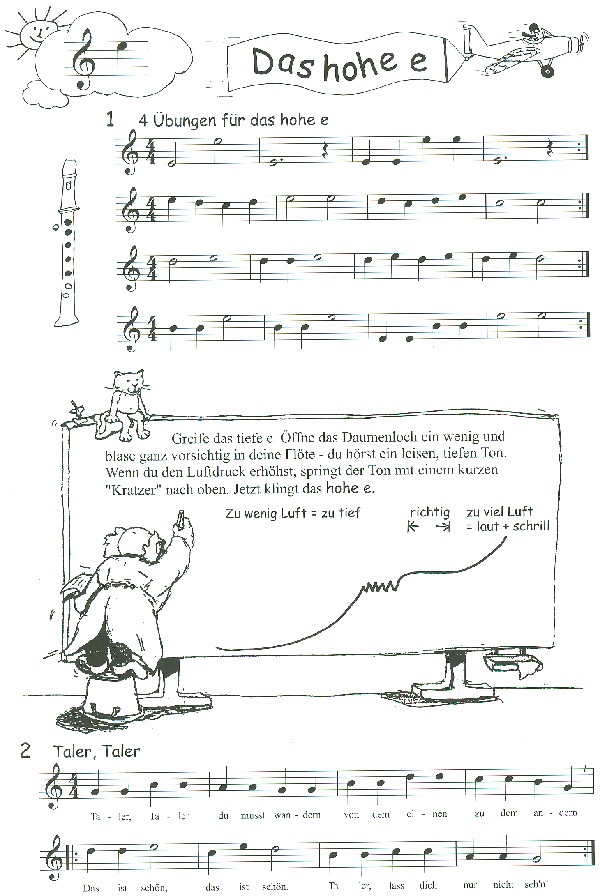 Das hohe e
1 4 Übungen für das hohe e
Greife das tiefe e. Öffne das Daumenloch ein wenig und
blase ganz vorsichtig in deine Flöte - du hörst ein leisen, tiefen Ton.
Wenn du den Luftdruck erhöhst, springt der Ton mit einem kurzen
"Kratzer" nach oben. Jetzt klingt das hohe e.
Zu wenig Luft = zu tief richtig zu viel Luft
= laut + schrill
2 Taler, Taler
Ta - ler, Ta - ler du musst wan - dern von dem ei - nen zu dem an - dern
Das ist schön, das ist schön. Ta ler, lass dich nur nicht seh'n